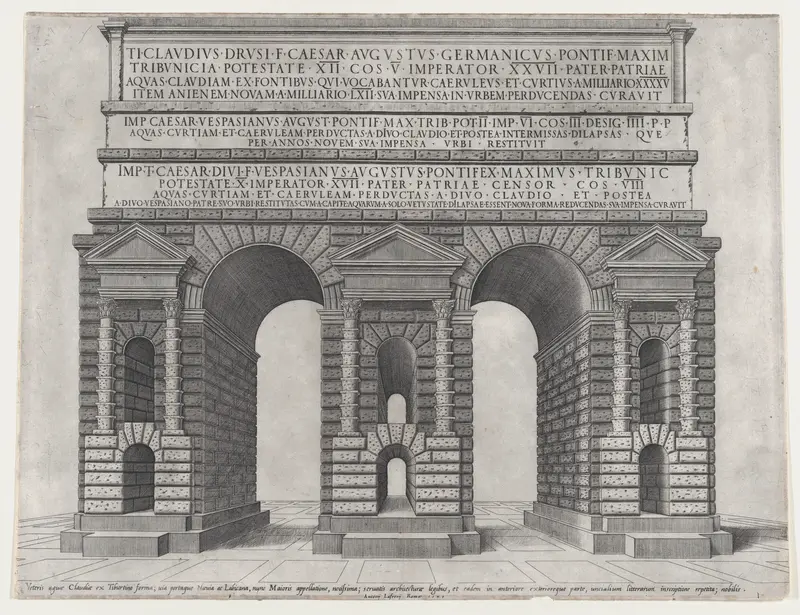 TI·CLAVDIVS·DRVSI·F·CAESAR·AVGVSTVS·GERMANICVS·PONTIF·MAXIM
TRIBVNICIA·POTESTATE·XII·COS·V·IMPERATOR·XXVII·PATER·PATRIAE
AQVAS·CLAVDIAM·EX·FONTIBVS·QVI·VOCABANTVR·CAERVLEVS·ET·CVRTIVS·A·MILLIARIO·XXXXV
ITEM·ANIENEM·NOVAM·A·MILLIARIO·LXII·SVA·IMPENSA·IN·VRBEM·PERDVCENDAS·CVRAVIT
IMP·CAESAR·VESPASIANVS·AVGVST·PONTIF·MAX·TRIB·POT·II·IMP·VI·COS·III·DESIG·IIII·P·P
AQVAS·CVRTIAM·ET·CAERVLEAM·PERDVCTAS·A·DIVO·CLAVDIO·ET·POSTEA·INTERMISSAS·DILAPSAS·QVE
PER·ANNOS·NOVEM·SVA·IMPENSA·VRBI·RESTITVIT
IMP·T·CAESAR·DIVI·F·VESPASIANVS·AVGVSTVS·PONTIFEX·MAXIMVS·TRIBVNIC
POTESTATE·X·IMPERATOR·XVII·PATER·PATRIAE·CENSOR·COS·VIII
AQVAS·CVRTIAM·ET·CAERVLEAM·PERDVCTAS·A·DIVO·CLAVDIO·ET·POSTEA
A·DIVO·VESPASIANO·PATRE·SVO·VRBI·RESTITVTAS·CVM·A·CAPITE·AQVARVM·A·SOLO·VETVSTATE·DILAPSAE·ESSENT·NOVA·FORMA·REDVCENDAS·SVA·IMPENSA·CVRAVIT
Veteris aquae Claudiae ex Tiburtino forma; uia portaque Neuia ac Labicana, nunc Maioris appellatione, notissima; seruatis architecturae legibus, et eadem in anteriore exterioreque parte, uncialium litterarum inscriptione repetita; nobilis.
Romae